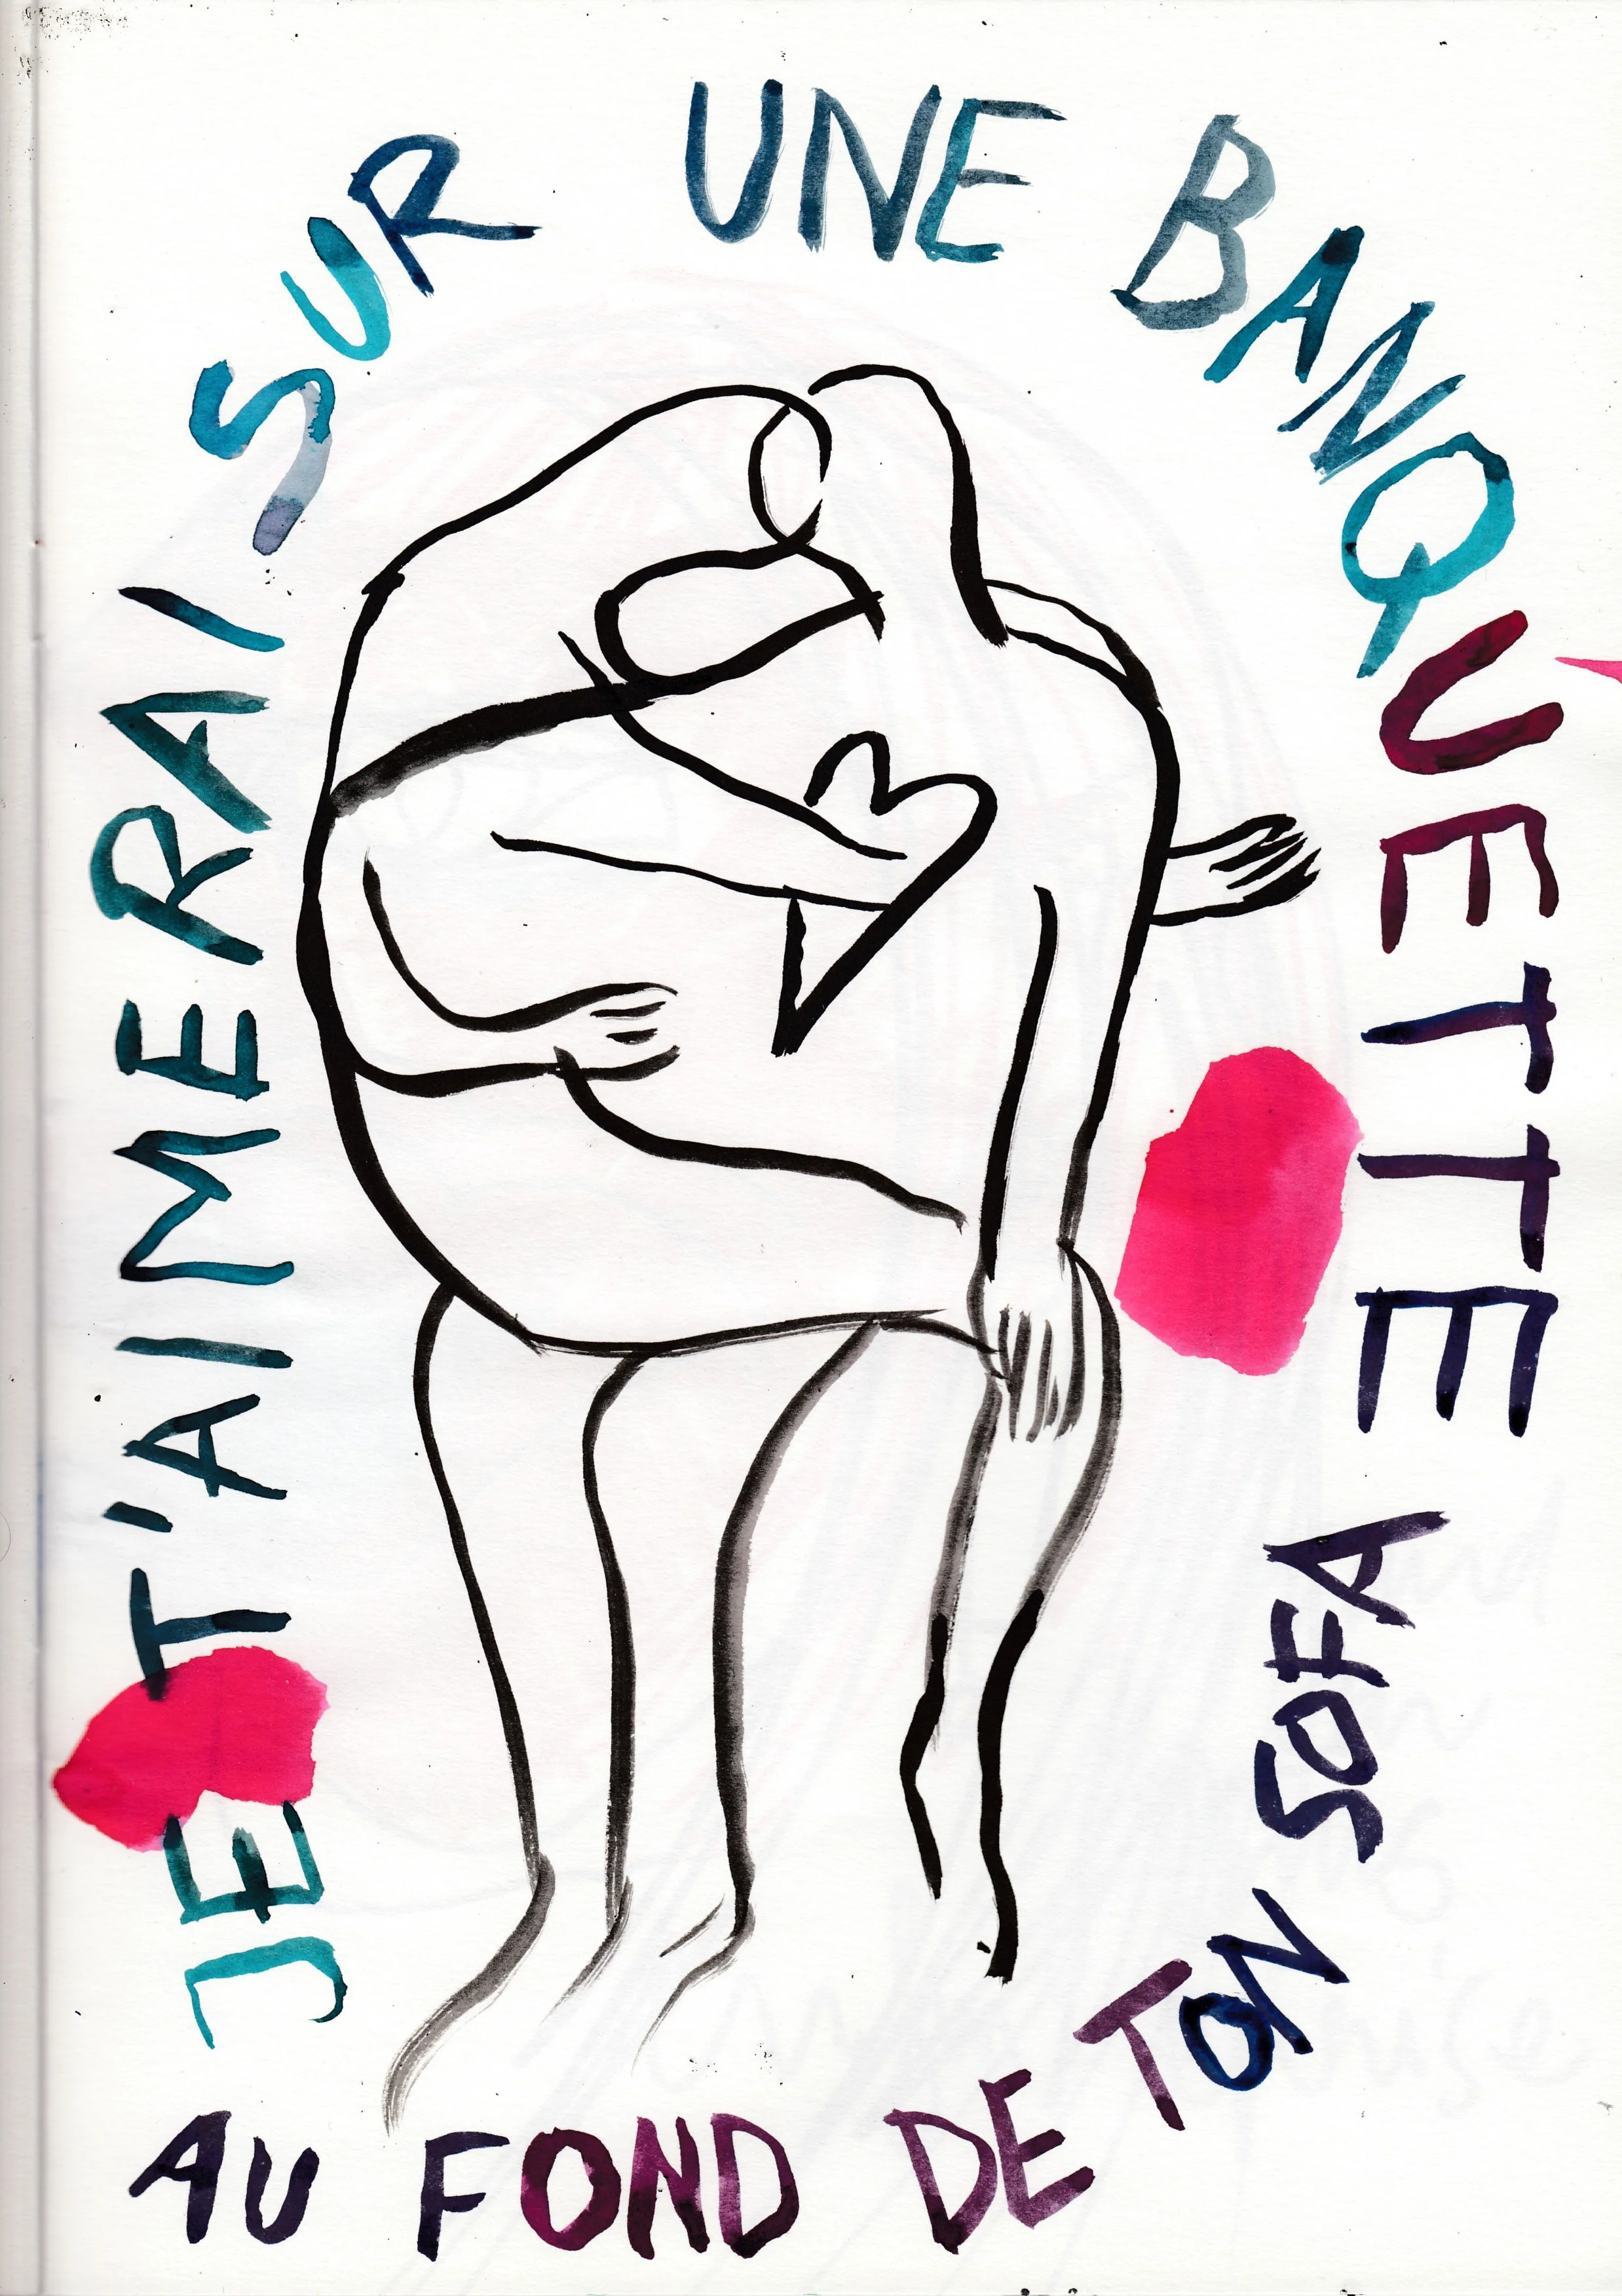 JE T'AIMERAI SUR UNE BANQUETTE
AU FOND DE TON SOFA